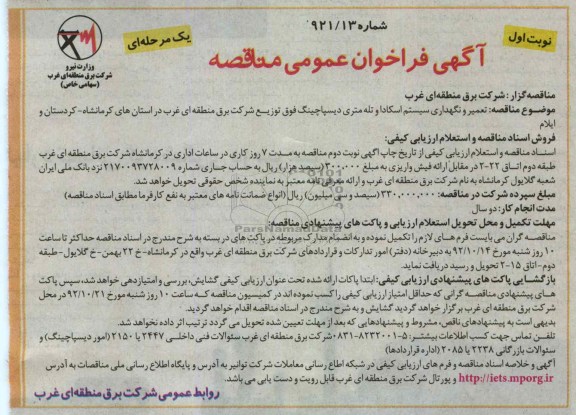 شماره ۹۲۱/۱۳
نوبت اول
یک مرحله‌ای
آگهی فراخوان عمومی مناقصه
وزارت نیرو
شرکت برق منطقه‌ای غرب
(سهامی خاص)
مناقصه‌گزار: شرکت برق منطقه‌ای غرب
موضوع مناقصه: تعمیر و نگهداری سیستم اسکادا و تله متری دیسپاچینگ فوق توزیع شرکت برق منطقه‌ای غرب در استان های کرمانشاه- کردستان و
ایلام
فروش اسناد مناقصه و استعلام ارزیابی کیفی:
اسناد مناقصه و استعلام ارزیابی کیفی از تاریخ چاپ آگهی نوبت دوم مناقصه به مدت ۷ روز کاری در ساعات اداری در کرمانشاه شرکت برق منطقه ای غرب
طبقه دوم اتاق ۲۲-۲ در مقابل ارائه فیش واریزی به مبلغ ۳۰۰,۰۰۰ (سیصد هزار) ریال به حساب جاری شماره ۲۱۷۰۰۹۳۷۲۸۰۰۹ نزد بانک ملی ایران
شعبه گلایول کرمانشاه به نام شرکت برق منطقه ای غرب و ارائه معرفی نامه معتبر به نماینده شخص حقوقی تحویل خواهد شد.
مبلغ سپرده شرکت در مناقصه: ۳۳۰,۰۰۰,۰۰۰ (سیصد و سی میلیون) ریال (انواع ضمانت نامه های معتبر به نفع کارفرما مطابق اسناد مناقصه)
مدت انجام کار: دو سال
مهلت تکمیل و محل تحویل استعلام ارزیابی و پاکت های پیشنهادی مناقصه:
مناقصه گران می بایست فرم های لازم را تکمیل نموده و به انضمام مدارک مربوطه در پاکت های در بسته به شرح مندرج در اسناد مناقصه حداکثر تا ساعت
۱۰ روز شنبه مورخ ۹۲/۱۰/۱۴ به دبیرخانه (دفتر) امور تدارکات و قراردادهای شرکت برق منطقه ای غرب واقع در کرمانشاه- خ ۲۲ بهمن- خ گلایول- طبقه
دوم- اتاق ۱۵-۲ تحویل و رسید دریافت نماید.
بازگشایی پاکت های پیشنهادی ارزیابی کیفی: ابتدا پاکات ارائه شده تحت عنوان ارزیابی کیفی گشایش، بررسی و امتیازدهی خواهد شد، سپس پاکت
های پیشنهادی مناقصه گرانی که حداقل امتیاز ارزیابی کیفی را کسب نموده اند در کمیسیون مناقصه که ساعت ۱۰ روز شنبه مورخ ۹۲/۱۰/۲۱ در محل
شرکت برق منطقه ای غرب برگزار خواهد گردید گشایش و به شرح مندرج در اسناد مناقصه اقدام خواهد گردید.
بدیهی است به پیشنهادهای ناقص، مشروط و پیشنهادهایی که بعد از مهلت تعیین شده تحویل می گردد ترتیب اثر داده نخواهد شد.
تلفن تماس جهت کسب اطلاعات بیشتر: ۵-۸۲۳۲۰۰۱-۰۸۳۱ شرکت برق منطقه ای غرب سئوالات فنی داخلی ۲۴۴۷ یا ۲۱۵۰ (امور دیسپاچینگ) و
سئوالات بازرگانی ۲۲۳۸ یا ۲۰۸۵ (اداره قراردادها)
آگهی و خلاصه اسناد مناقصه و فرم های ارزیابی کیفی در شبکه اطلاع رسانی معاملات شرکت توانیر به آدرس و پایگاه اطلاع رسانی ملی مناقصات به آدرس
http://iets.mporg.ir و پورتال شرکت برق منطقه ای غرب قابل رویت و دست یابی می باشد.
روابط عمومی شرکت برق منطقه‌ای غرب